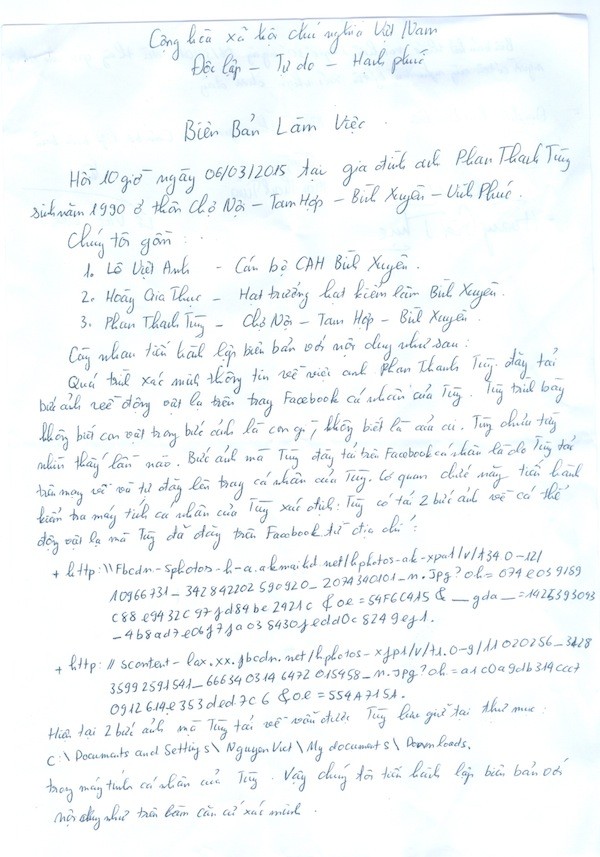 Cộng hòa xã hội chủ nghĩa Việt Nam
Độc lập - Tự do - Hạnh phúc
Biên Bản Làm Việc.
Hồi 10 giờ ngày 06/03/2015 tại gia đình anh Phan Thanh Tùng
sinh năm 1990 ở thôn Chợ Nội - Tam Hợp - Bình Xuyên - Vĩnh Phúc.
Chúng tôi gồm:
1. Lô Việt Anh - Cán bộ CAH Bình Xuyên.
2. Hoàng Gia Thục - Hạt trưởng hạt kiểm lâm Bình Xuyên.
3. Phan Thanh Tùng - Chợ Nội - Tam Hợp - Bình Xuyên.
Cùng nhau tiến hành lập biên bản với nội dung như sau:
Quá trình xác minh thông tin về việc anh Phan Thanh Tùng đăng tải
bức ảnh về động vật lạ trên trang Facebook cá nhân của Tùng. Tùng trình bày
không biết con vật trong bức ảnh là con gì, không biết là của ai. Tùng chưa từng
nhìn thấy lần nào. Bức ảnh mà Tùng đăng tải trên Facebook cá nhân là do Tùng tải
trên mạng về và tự đăng lên trang cá nhân của Tùng. Cơ quan chức năng tiến hành
kiểm tra máy tính cá nhân của Tùng xác định: Tùng có tải 2 bức ảnh về cá thể
động vật lạ mà Tùng đã đăng trên Facebook từ địa chỉ:
+ http:\\Fbcdn-sphotos-h-a.akamaihd.net/hphotos-ak-xpa1/v/t34.0-12/
10966731_342842202590920_2074340101_n.jpg?oh=074e059159
c88e9432c97fd84be2421c&oe=54F6C415&__gda__=1425393093
_4b8ad7e06f7fa0385430fedd0c8249ef1.
+ http://scontent-lax.xx.fbcdn.net/hphotos-xfp1/v/t1.0-9/11020256_3428
35992591541_6663403146472015458_n.jpg?oh=a1c0a9db314ccc7
0912614e353ded7c6&oe=554A7151.
Hiện tại 2 bức ảnh mà Tùng tải về vẫn được Tùng lưu giữ tại thư mục:
C:\Documents and Settings\NguyenViet\My documents\Downloads.
trong máy tính cá nhân của Tùng. Vậy chúng tôi tiến hành lập biên bản với
nội dung như trên làm căn cứ xác minh.